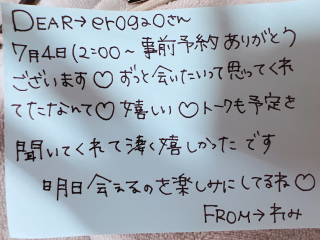 DEAR→erogaoさん
7月4日12:00〜事前予約ありがとう
ございます♡ずっと会いたいって思ってくれ
てたなんて♡嬉しい♡トークも予定を
聞いてくれて凄く嬉しかったです
明日会えるのを楽しみにしてるね♡
FROM→れみ